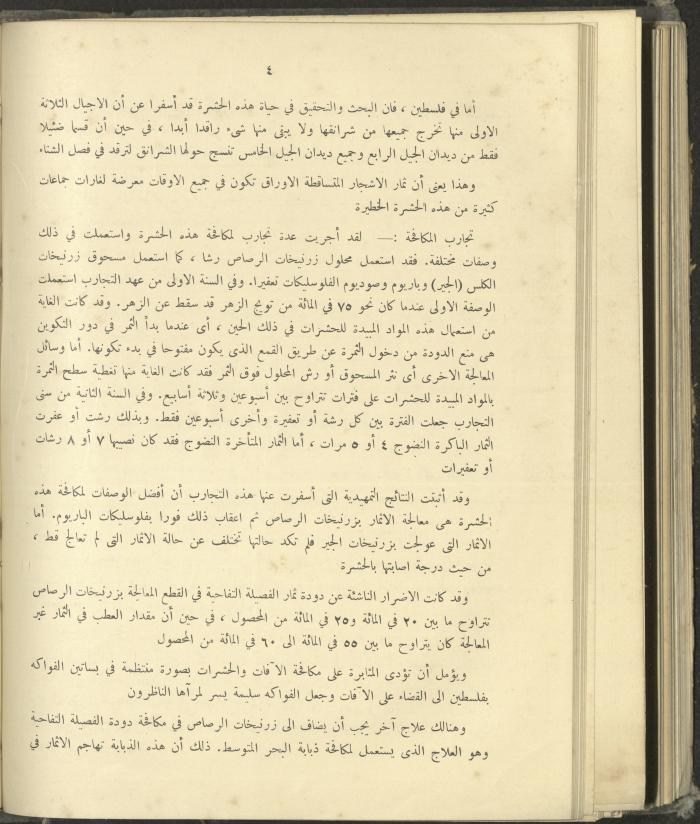 ٤
أما في فلسطين ، فان البحث والتحقيق في حياة هذه الحشرة قد أسفرا عن أن الاجيال الثلاثة
الاولى منها تخرج جميعها من شرانقها ولا يبقى منها شىء راقدا أبدا ، في حين أن قسما ضئيلا
فقط من ديدان الجيل الرابع وجميع ديدان الجيل الخامس تنسج حولها الشرانق لترقد في فصل الشتاء
وهذا يعنى أن ثمار الاشجار المتساقطة الاوراق تكون في جميع الاوقات معرضة لغارات جماعات
كثيرة من هذه الحشرة الخطيرة
تجارب المكافحة :— لقد أجريت عدة تجارب لمكافحة هذه الحشرة واستعملت في ذلك
وصفات مختلفة. فقد استعمل محلول زرنيخات الرصاص رشا ، كما استعمل مسحوق زرنيخات
الكلس (الجير) وباريوم وصوديوم الفلوسليكات تعفيرا. وفي السنة الاولى من عهد التجارب استعملت
الوصفة الاولى عندما كان نحو ٧٥ في المائة من تويج الزهر قد سقط عن الزهر. وقد كانت الغاية
من استعمال هذه المواد المبيدة للحشرات في ذلك الحين ، أى عندما بدأ الثمر في دور التكوين
هى منع الدودة من دخول الثمرة عن طريق القمع الذى يكون مفتوحا في بدء تكونها. أما وسائل
المعالجة الاخرى أى نثر المسحوق أو رش المحلول فوق الثمر فقد كانت الغاية منها تغطية سطح الثمرة
بالمواد المبيدة للحشرات على فترات تتراوح بين أسبوعين وثلاثة أسابيع. وفي السنة الثانية من سنى
التجارب جعلت الفترة بين كل رشة أو تعفيرة وأخرى أسبوعين فقط. وبذلك رشت أو عفرت
الثمار الباكرة النضوج ٤ أو ٥ مرات ، أما الثمار المتأخرة النضوج فقد كان نصيبها ٧ أو ٨ رشات
أو تعفيرات
وقد أثبتت النتائج التمهيدية التى أسفرت عنها هذه التجارب أن أفضل الوصفات لمكافحة هذه
الحشرة هى معالجة الاثمار بزرنيخات الرصاص ثم اعقاب ذلك فورا بفلوسليكات الباريوم. أما
الاثمار التى عولجت بزرنيخات الجير فلم تكد حالتها تختلف عن حالة الاثمار التى لم تعالج قط ،
من حيث درجة اصابتها بالحشرة
وقد كانت الاضرار الناشئة عن دودة ثمار الفصيلة التفاحية في القطع المعالجة بزرنيخات الرصاص
تتراوح ما بين ٢٠ في المائة و٢٥ في المائة من المحصول ، في حين أن مقدار العطب في الثمار غير
المعالجة كان يتراوح ما بين ٥٥ في المائة الى ٦٠ في المائة من المحصول
ويؤمل أن تؤدى المثابرة على مكافحة الآفات والحشرات بصورة منتظمة في بساتين الفواكه
بفلسطين الى القضاء على الآفات وجعل الفواكه سليمة يسر لمرآها الناظرون
وهنالك علاج آخر يجب أن يضاف الى زرنيخات الرصاص في مكافحة دودة الفصيلة التفاحية
وهو العلاج الذى يستعمل لمكافحة ذبابة البحر المتوسط. ذلك أن هذه الذبابة تهاجم الاثمار في